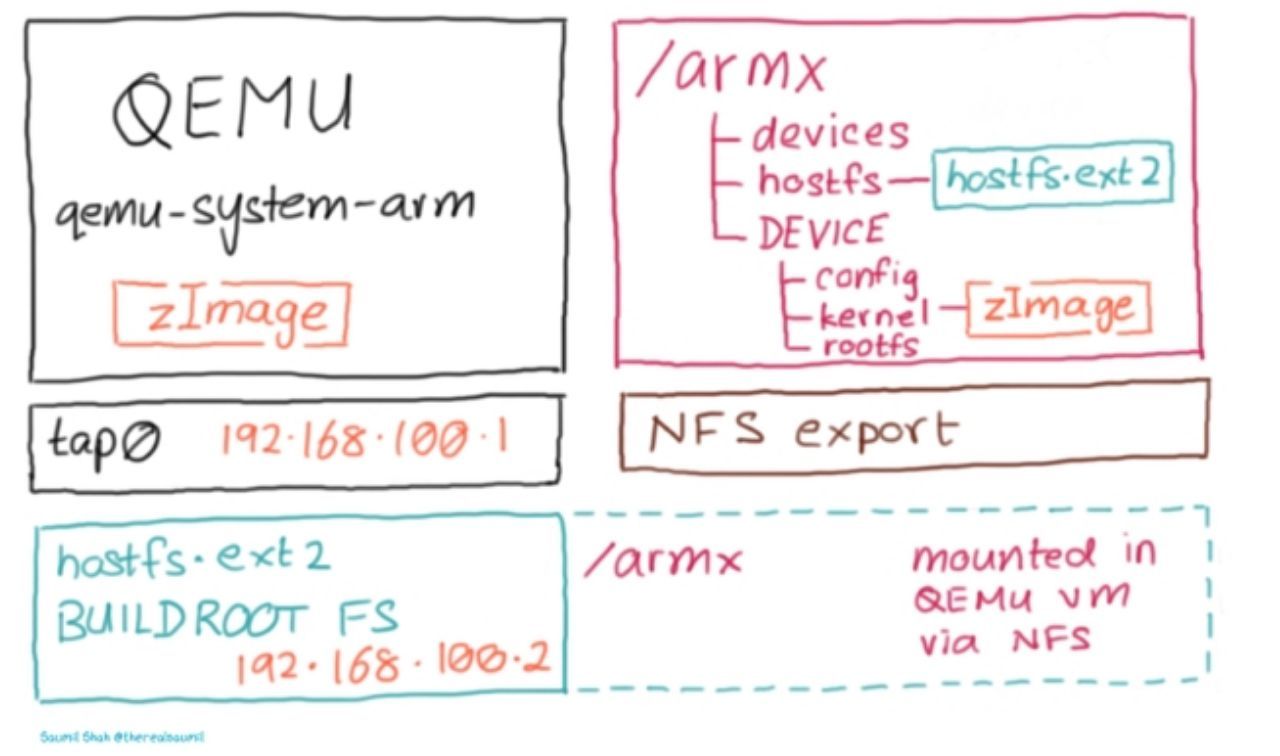 QEMU
qemu-system-arm
zImage
/armx
devices
hostfs
hostfs.ext2
DEVICE
config
kernel
zImage
rootfs
tap0 192.168.100.1
NFS export
hostfs.ext2
BUILDROOT FS
192.168.100.2
/armx
mounted in
QEMU vm
via NFS
Saumil Shah @therealsaumil